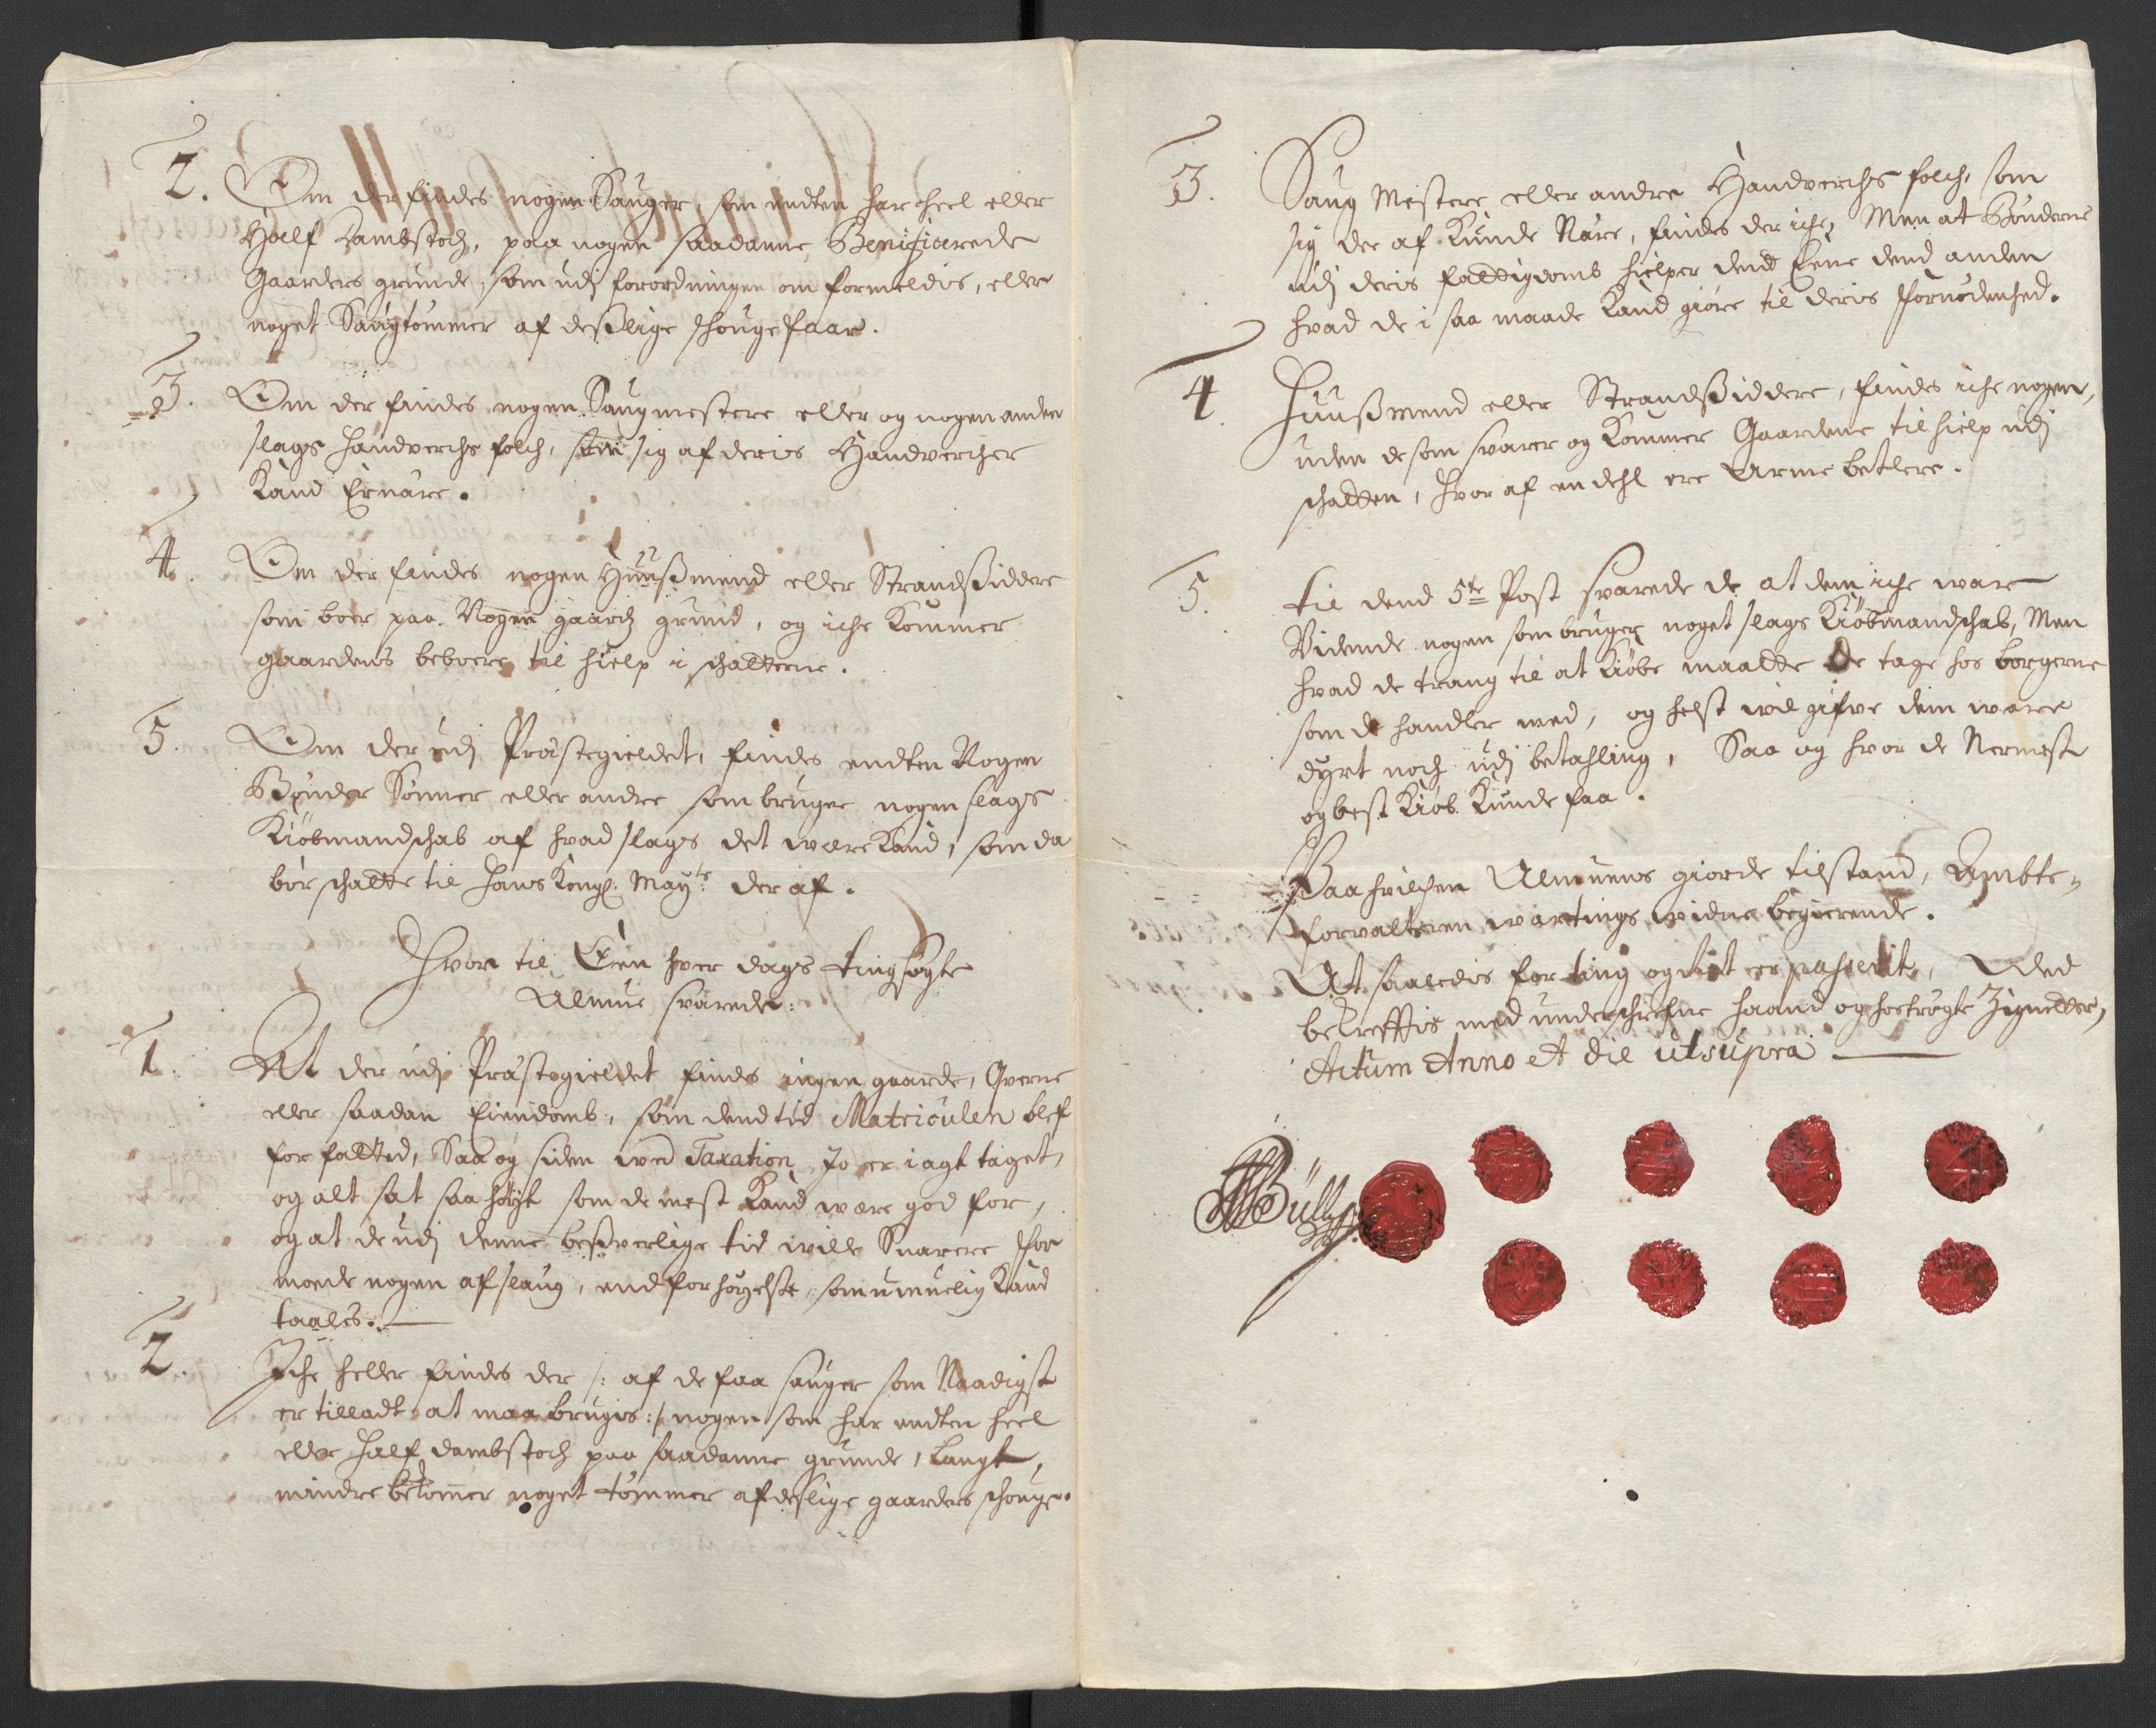 2. Om der findes nogen Sauger, som endten har heel eller
Half Dambstoch, paa nogen saadanne Benificerede
Gaarders grunde, som udj forordningen om formeldis, eller
noget Saugtømmer af deslige schouge faar.
3. Om der findes nogen Saugmestere eller og nogen anden
slags handverchs folch, som sig af deris Handvercher
Kand Ernære.
4. Om der findes nogen Huusmend eller Strandsiddere
som boer paa Nogen gaards grund, og iche Kommer
gaardens beboere til hielp i schatterne.
5. Om der udj Præstegieldet, findes endten Nogen
Bønder Sønner eller andre som bruger nogen slags
Kiøbmandschab af hvad slags det være Kand, som da
bør schatte til Hans Kongl: Mayts der af.
Hvor til Een hver dags tingsøgte
Almue svarede:
1. At der udj Præstegieldet findes ingen gaarde, Qverne
eller saadan Eiendomb, som dend tid Matriculen blef
forfatted, Saa og siden ved Taxation Jo er iagt taget,
og alt sat saa høyt som de mest Kand være god for,
og at de udj denne besverlige tid wille Snarere for
moede nogen afslaug, end forhøyelse, som umuelig Kand
taales.
2. Iche heller findes der /: af de faa sauger som Naadigst
er tilladt at maa brugis :/ nogen som har endten heel
eller half dambstoch paa saadanne grunde, langt
mindre bekommer noget tømmer af deslige gaarders schouge.
3. Saug Mestere eller andre Handverchs folch, som
sig der af Kunde Nære, findes der iche, Men at Bønderne
udj deris fattigdomb hielper dend Eene dend anden
hvad de i saa maade Kand giøre til deris fornødenhed.
4. Huusmend eller Strandsiddere, findes iche nogen,
uden de som svarer og Kommer Gaardene til hielp udj
schatten, hvor af en dehl ere Arme betlere.
5. til dend 5te Post svarede de at dem iche var
Vidende nogen som bruger noget slags Kiøbmandschab, Men
hvad de trang til at Kiøbe maatte De tage hos borgerne
som de handler med, og helst wil gifve dem ware
dyrt noch udj betahling, Saa og hvor de Nermest
og best Kiøb Kunde faa.
Paa hvilchen Almuens giorde tilstand, Ambts-
forvalteren war tings widne begierende.
At saaledis for ting og Ret er passerit, Ved
bekrefftis med underschrefne haand og hostrøgte Zignetter,
Actum Anno et die utsupra